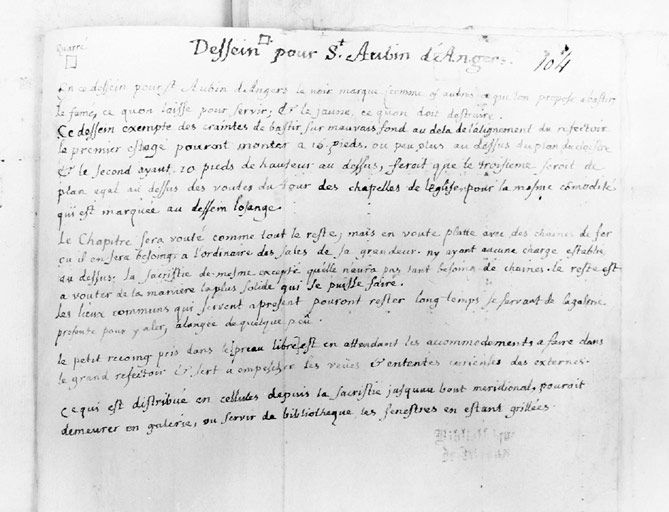 Quarré
Dessein □. pour St. Aubin d'Angers.
104
En ce dessein pour st Aubin d'Angers le noir marque comme es autres ce que l'on propose a bastir,
le fume, ce quon laisse pour servir; & le jaune, ce quon doit destruire.
Ce dessein exempte des craintes de bastir sur mauvais fond au dela de lalignement du refectoir
le premier estage pouront monter a 16. pieds, ou peu plus au dessus du plan du cloistre
& le second ayant 10 pieds de hauteur au dessus, feroit que le troisieme seroit de
plan egal au dessus des voutes du tour des chapelles de leglise, pour la mesme cōmodite
qui est marquée au dessein losange.
Le Chapitre sera vouté comme tout le reste; mais en voute platte avec des chaines de fer
ou il en sera besoing, a l'ordinaire des sales de sa grandeur. ny ayant aucune charge establie
au dessus. la sacristie de mesme excepté quelle naura pas tant besoing de chaines. le reste est
a vouter de la maniere la plus solide qui se puisse faire.
les lieux communs qui servent a present pouront rester long temps se servant de la galerie
presente pour y aler, alongée de quelque peu.
le petit recoing pris dans le preau libre, est en attendant les accommodements a faire dans
le grand refectoir & sert a empescher les veües & ententes curieuses des externes.
Ce qui est distribue en cellules depuis la sacristie jusquau bout meridional, pouroit
demeurer en galerie, ou servir de bibliotheque les fenestres en estans grillées